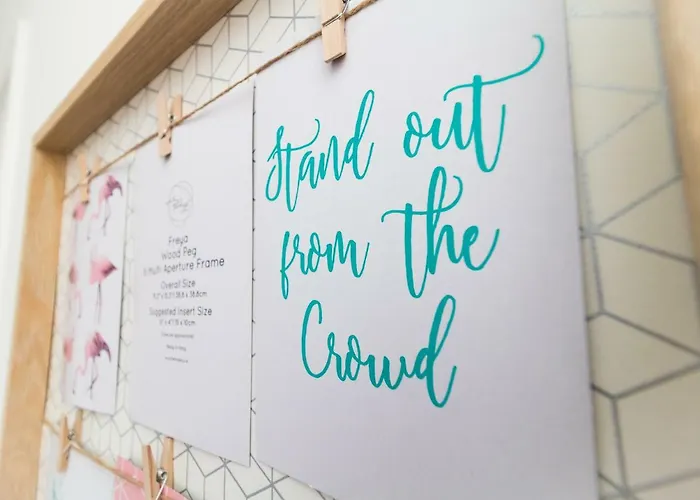 Stand out
from the
Crowd
Freya
Wood Peg
Multi Aperture Frame
Overall Size
Suggested Insert Size